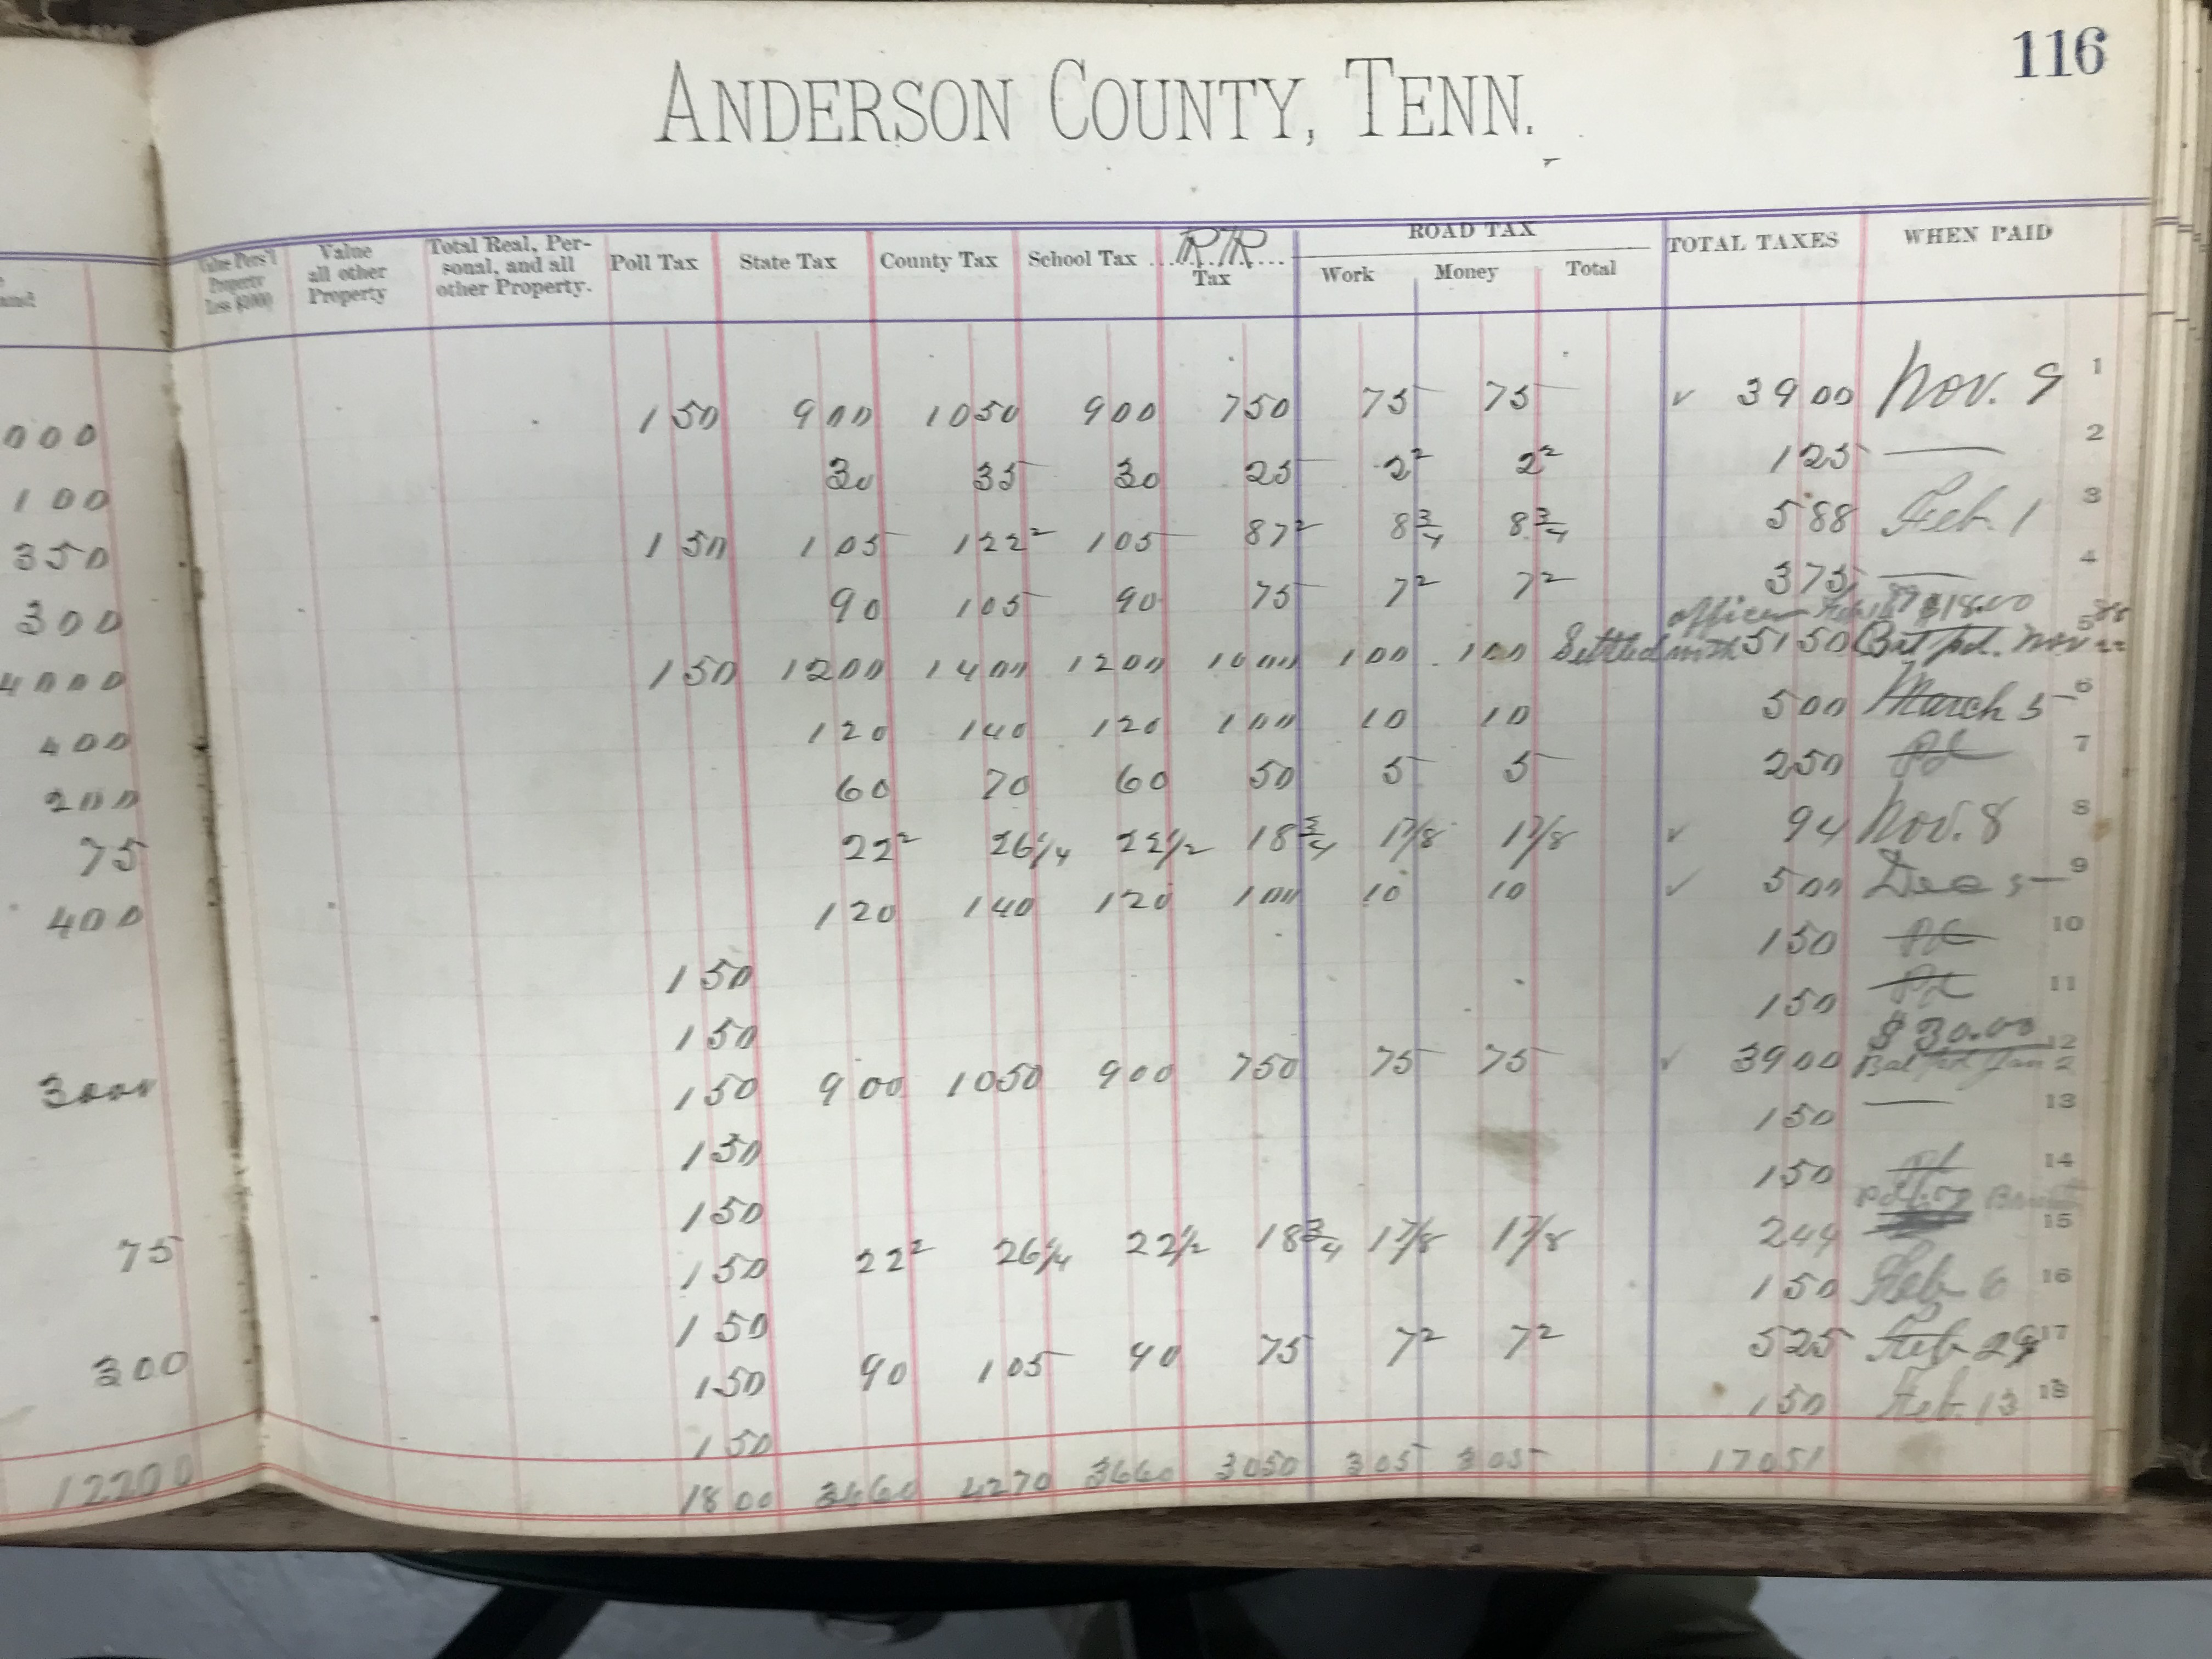 116
ANDERSON COUNTY, TENN.
Value Pers'l Property Less $1000 Value all other Property Total Real, Personal, and all other Property. Poll Tax State Tax County Tax School Tax R.R. Tax ROAD TAX Work Money Total TOTAL TAXES WHEN PAID
000 1 50 9 00 10 50 9 00 7 50 75 75 ✓ 39 00 Nov. 9 1
100 30 35 30 25 2² 2² 1 25 — 2
350 1 50 1 05 1 22² 1 05 87² 8¾ 8¾ 5 88 Feb. 1 3
300 90 1 05 90 75 7² 7² 3 75 — 4
officer $18.00
4000 1 50 12 00 14 00 12 00 10 00 1 00 1 00 Settled with 51 50 Bal pd. Nov 22 5
400 1 20 1 40 1 20 1 00 10 10 5 00 March 5 6
200 60 70 60 50 5 5 2 50 Pd 7
75 22² 26¼ 22½ 18¾ 1⅞ 1⅞ ✓ 94 Nov. 8 8
400 1 20 1 40 1 20 1 00 10 10 ✓ 5 00 Dec 5 9
1 50 1 50 Pd 10
1 50 1 50 Pd 11
$30.00
3000 1 50 9 00 10 50 9 00 7 50 75 75 ✓ 39 00 Bal pd Jan 2 12
1 50 1 50 — 13
1 50 1 50 Pd 14
75 1 50 22² 26¼ 22½ 18¾ 1⅞ 1⅞ 2 44 15
1 50 1 50 Feb 6 16
300 1 50 90 1 05 90 75 7² 7² 5 25 Feb 29 17
1 50 1 50 Feb. 13 18
12200 18 00 36 60 42 70 36 60 30 50 3 05 3 05 170 51